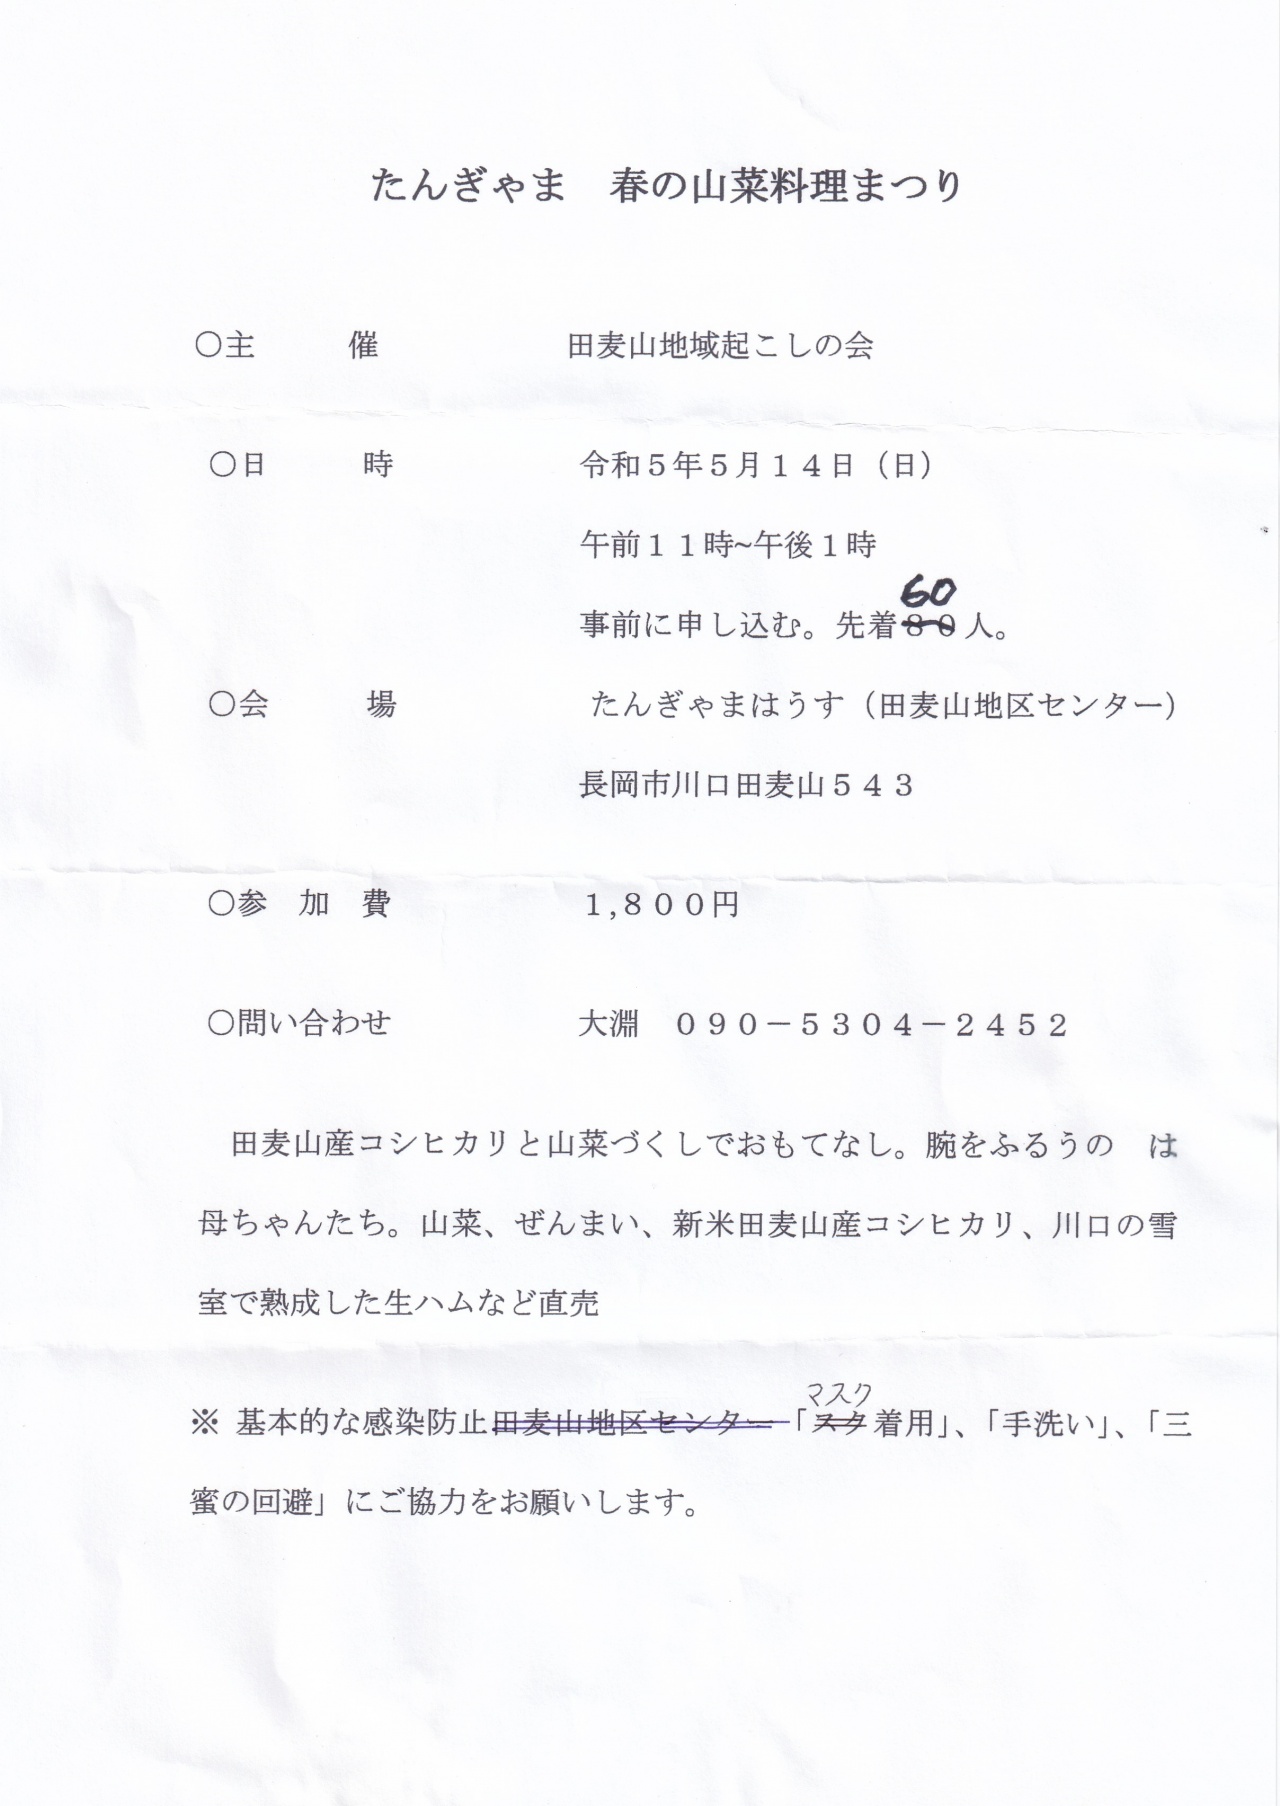 たんぎゃま　春の山菜料理まつり
〇主　　　催　　　　　　田麦山地域起こしの会
〇日　　　時　　　　　　令和５年５月１４日（日）
午前１１時~午後１時
60
事前に申し込む。先着８０人。
〇会　　　場　　　　　　たんぎゃまはうす（田麦山地区センター）
長岡市川口田麦山５４３
〇参　加　費　　　　　　１,８００円
〇問い合わせ　　　　　　大淵　０９０－５３０４－２４５２
田麦山産コシヒカリと山菜づくしでおもてなし。腕をふるうの　は
母ちゃんたち。山菜、ぜんまい、新米田麦山産コシヒカリ、川口の雪
室で熟成した生ハムなど直売
マスク
※ 基本的な感染防止田麦山地区センター「スタ着用」、「手洗い」、「三
蜜の回避」にご協力をお願いします。